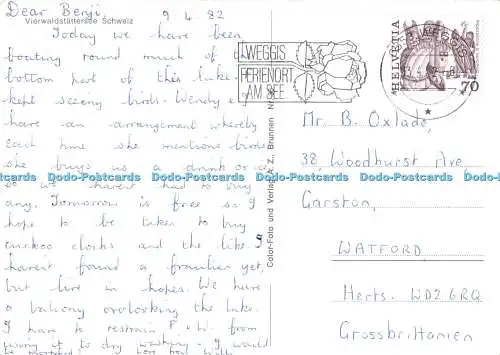 Dear Benji,
9.4.82
Vierwaldstättersee Schweiz
Today we have been
boating round much of the
bottom part of this lake. I
kept seeing birds. Wendy &
have an arrangement whereby
each time she mentions birds
she buys us a drink or
so we haven't had to buy
any. Tomorrow is free so I
hope to be taken to buy
cuckoo clocks and the like. I
haven't found a yet,
but live in hopes. We have
a balcony overlooking the lake.
I have to restrain F.W. from
using it to dry washing - I would
be
WEGGIS
FERIENORT
AM SEE
WEGGIS
HELVETIA
70
Color-Foto und Verlag A.Z. Brunnen Nr
Mr. B. Oxlade,
38, Woodhurst Ave,
Garston,
WATFORD
Herts. WD2 6RQ
Grossbritanien
Dodo-Postcards Dodo-Postcards Dodo-Postcards Dodo-Postcards Dodo-Postcards Dodo-Postcards